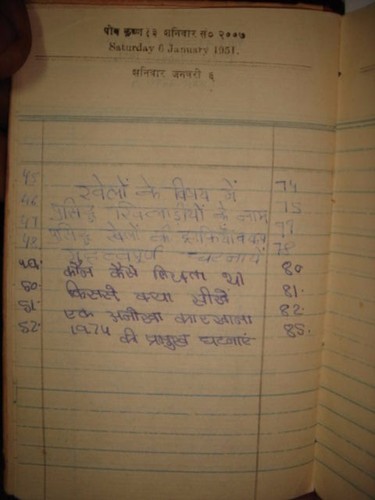 पौष कृष्ण १३ शनिवार सं० २००७
Saturday 6 January 1951.
शनिवार जनवरी ६
45 खेलों के विषय में 74
46 प्रसिद्ध खिलाडीयों के नाम 75
47 प्रसिद्ध खेलों की 77
48. महत्वपूर्ण घटनायें 78
49. कौन कैसे था 80
50. किससे क्या सीखें 81.
51. एक अनोखा कारखाना 82.
52. 1974 की प्रमुख घटनाएं 85.